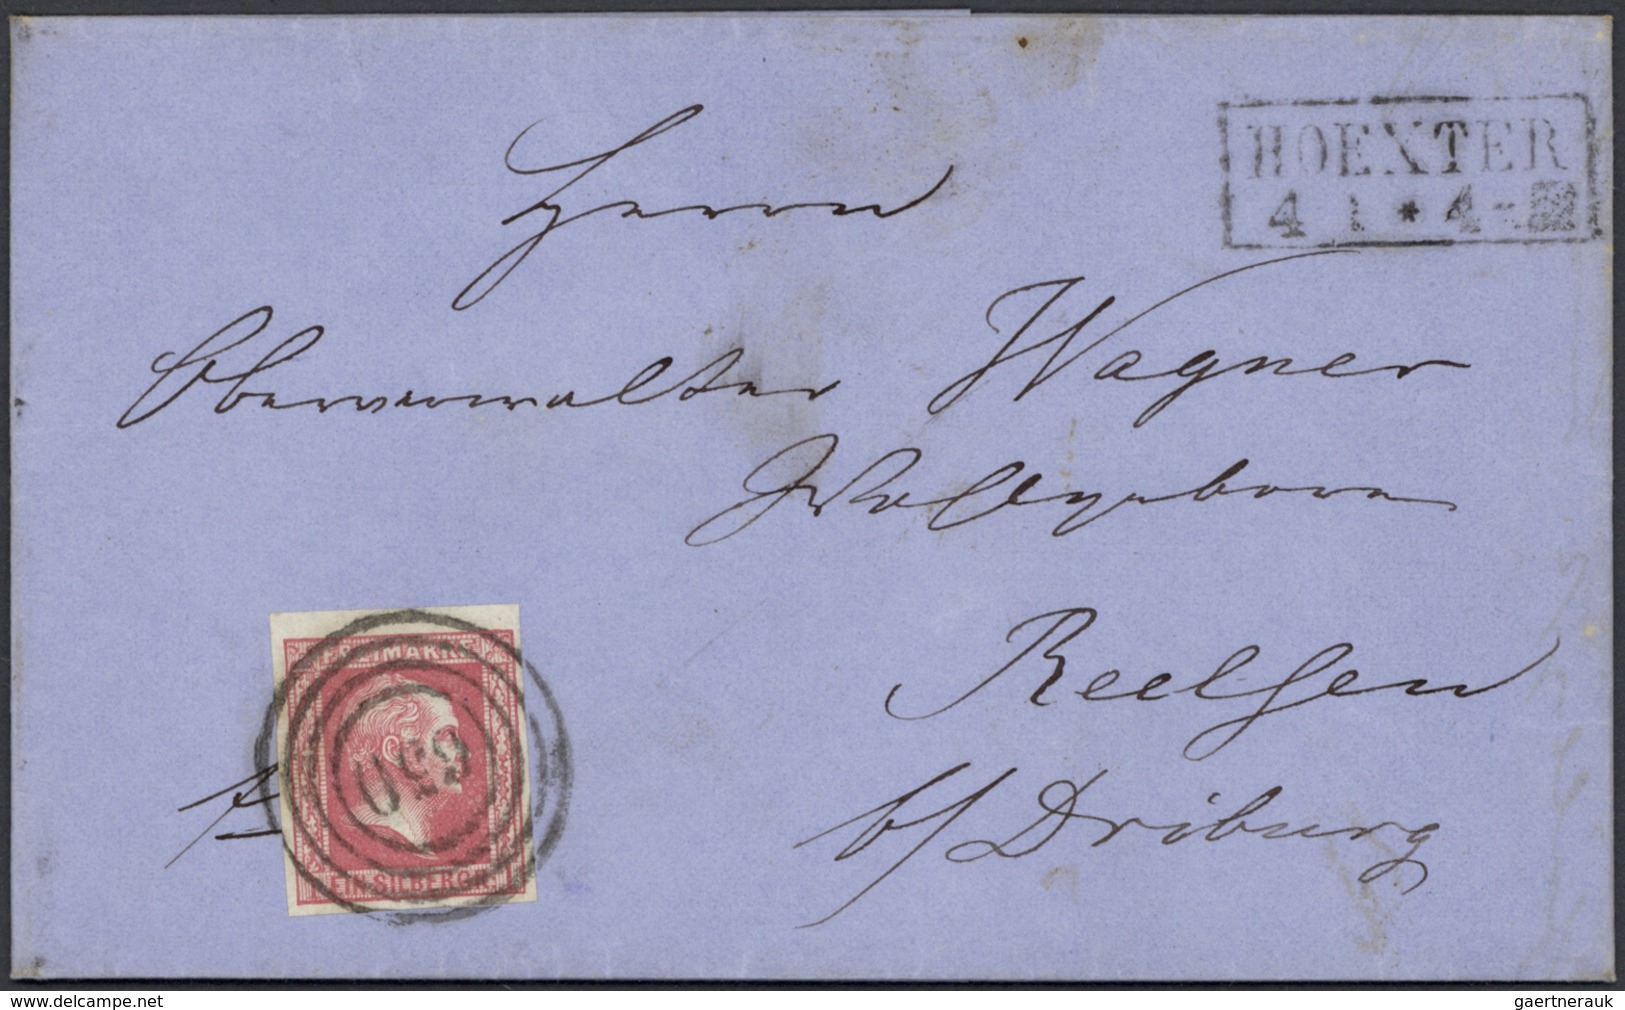 HOEXTER
4 1 * 4-
Herrn
Oberverwalter Wagner
Wohlgeboren
Reelsen
b/Driburg
FREIMARKE
EIN SILBERGR.
www.delcampe.net
gaertnerauk